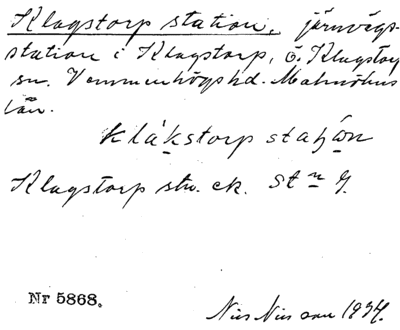 Klagstorp station, järnvägs-
station i Klagstorp, ö. Klagstorp
sn. Vemmenhögs hd. Malmöhus
län.
klákstorp staʃón
Klagstorp stn. ek. St n
Nr 5868.